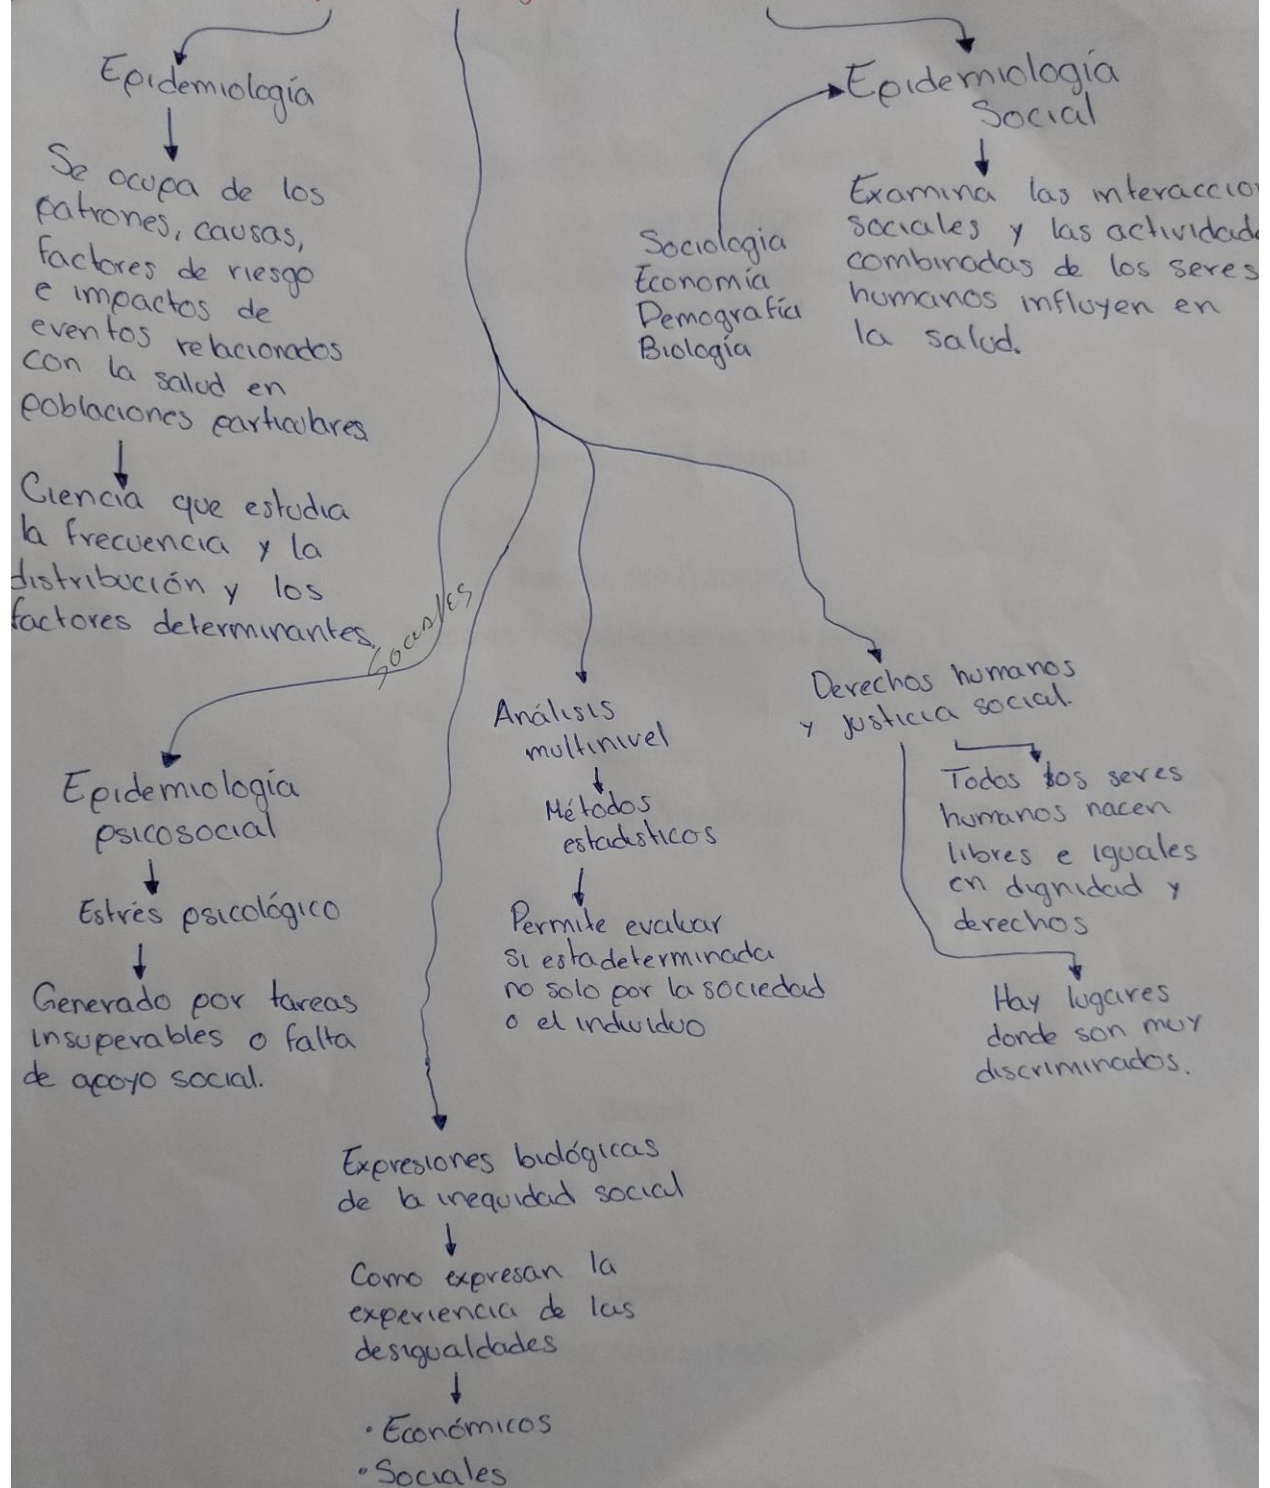 Epidemiología
Se ocupa de los
patrones, causas,
factores de riesgo
e impactos de
eventos relacionados
con la salud en
poblaciones particulares
Ciencia que estudia
la frecuencia y la
distribución y los
factores determinantes
Sociales
Epidemiología
Social
Sociología
Economía
Demografía
Biología
Examina las interaccio
sociales y las actividad
combinadas de los seres
humanos influyen en
la salud.
Epidemiología
psicosocial
Estrés psicológico
Generado por tareas
insuperables o falta
de apoyo social.
Análisis
multinivel
Métodos
estadísticos
Permite evaluar
si esta determinada
no solo por la sociedad
o el individuo
Derechos humanos
y justicia social.
Todos los seres
humanos nacen
libres e iguales
en dignidad y
derechos
Hay lugares
donde son muy
discriminados.
Expresiones biológicas
de la inequidad social
Como expresan la
experiencia de las
desigualdades
· Económicos
· Sociales